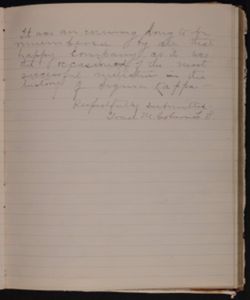 It was an evening long to be
remembered by the
happy company as it was
the occasion of the most
successful initiation in the
history of Sigma Kappa.
Respectfully submitted
Grace M.